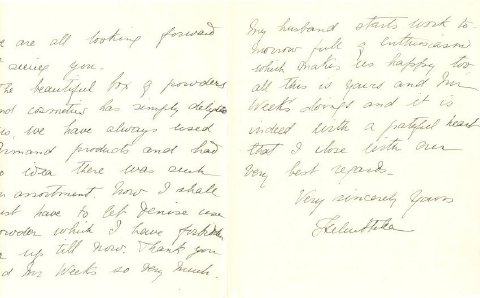 are all looking forward
seeing you.
beautiful box of powders
cosmetics has simply
we have always used
products and had
idea there was such
assortment. Now I shall
have to let Denise use
powder which I have
up till now. Thank you
Mr Weeks so very much.
My husband starts work to-
morrow full of enthusiasm
which makes us happy too
all this is yours and Mr
Weeks doings and it is
indeed with a grateful heart
that I close with our
very best regards.
Very sincerely yours